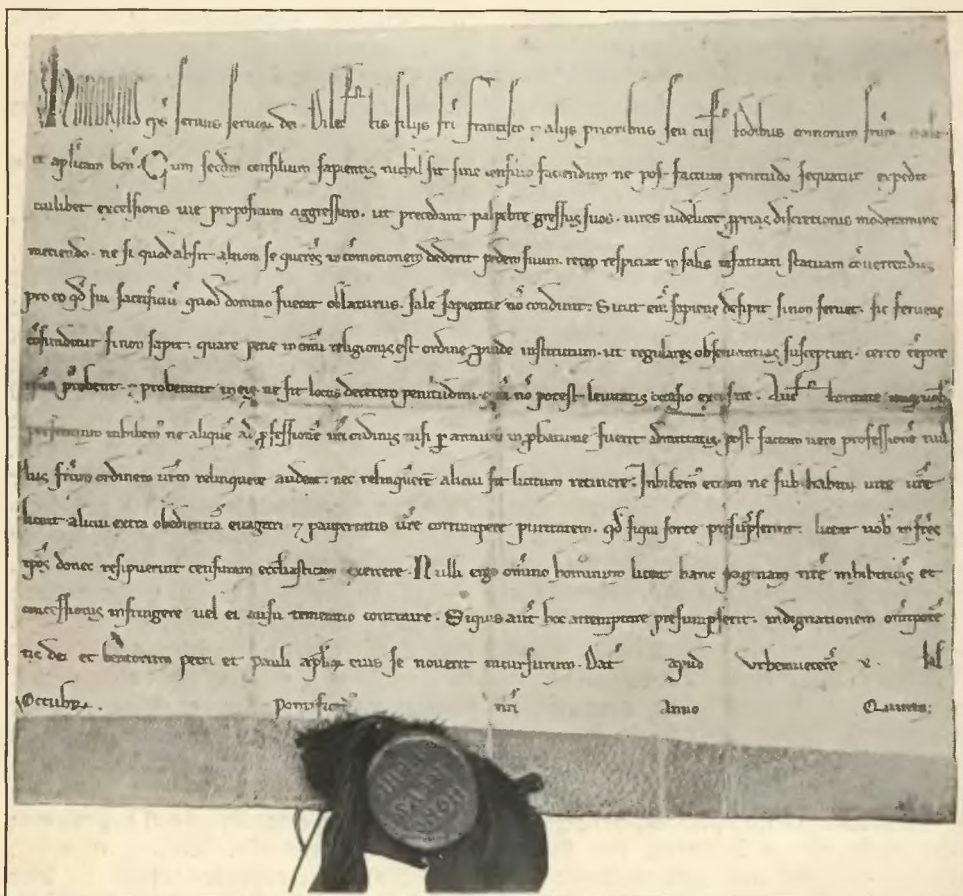 honorius ep̄s servus servoꝝ dei. Dilectis filijs frī francisco ⁊ alijs prioribus seu custodibus minorum frūm salt̄
et aplīcam ben̄. Cum secd̄m consilium sapientis nichil sit sine consilio faciendum ne post factum penitudo sequatur expedit
cuilibet excelsioris vite propositum aggressuro. ut precedant palpebre gressus suos. vires videlicet ꝓprias discretionis moderamine
metiendo. ne si quod absit altiora se querēs in cōmotionem dederit pedem suum. retro respiciat in salis infatuati statuam cōvertendus
pro eo qd̄ sui sacrificiū quod domino fuerat oblaturus. sale sapientie nō condivit. Sicut enī sapiens desipit si non fervet. sic fervens
cōfunditur si non sapit. quare pene in omī religionis est ordine ꝓvide institutum. ut regulares observantias suscepturi. certo tēpore
ip̄as ꝓbent. ⁊ probentur in eis. ne sit locus decetero penitudini. quā nō potest levitatis occasio excusare. Auct̄ itate vobis
presentium inhibem̄ ne aliquē ad ꝓfessionē vr̄i ordinis nisi ꝑ annum in ꝓbatione fuerit admittatis. post factam vero professionē nul
lus frūm ordinem vr̄m relinquere audeat. nec relinquētē alicui sit licitum retinere. Inhibem̄ etiam ne sub habitu vite vr̄e
liceat alicui extra obedientiā evagari ⁊ paupertatis vr̄e corrumpere puritatem. qd̄ siqui forte presūpserint. liceat vob̄ in fr̄es
ip̄os donec resipuerint censuram ecclīasticam exercere. Nulli ergo omīno hominum liceat hanc paginam nr̄e inhibitiōis et
concessionis infringere vel ei ausu temerario contraire. Siquis aut̄ hoc attemptare presumpserit. indignationem omīpotē
tis dei et beatorum petri et pauli aplōꝝ eius se noverit incursurum. Dat̄ apud Urbemveterē x. kal̄
Octubr̄. Pontificat̄ nr̄i Anno Quinto;